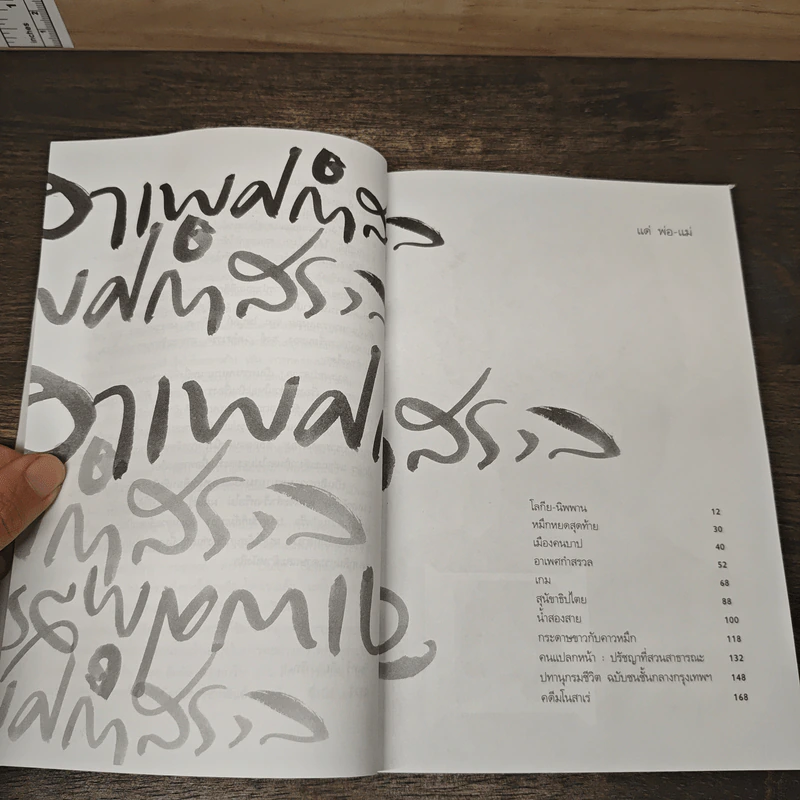 inches
1
2
อาเพศกำส
พศกำสรว
อาเพศกำสรวล
กำสรวล
พศกำสรวล
แด่ พ่อ-แม่
โลกีย-นิพพาน 12
หมึกหยดสุดท้าย 30
เมืองคนบาป 40
อาเพศกำสรวล 52
เกม 68
สุนัขาธิปไตย 88
น้ำสองสาย 100
กระดาษขาวกับคาวหมึก 118
คนแปลกหน้า : ปรัชญาที่สวนสาธารณะ 132
ปทานุกรมชีวิต ฉบับชนชั้นกลางกรุงเทพฯ 148
คดีมโนสาเร่ 168